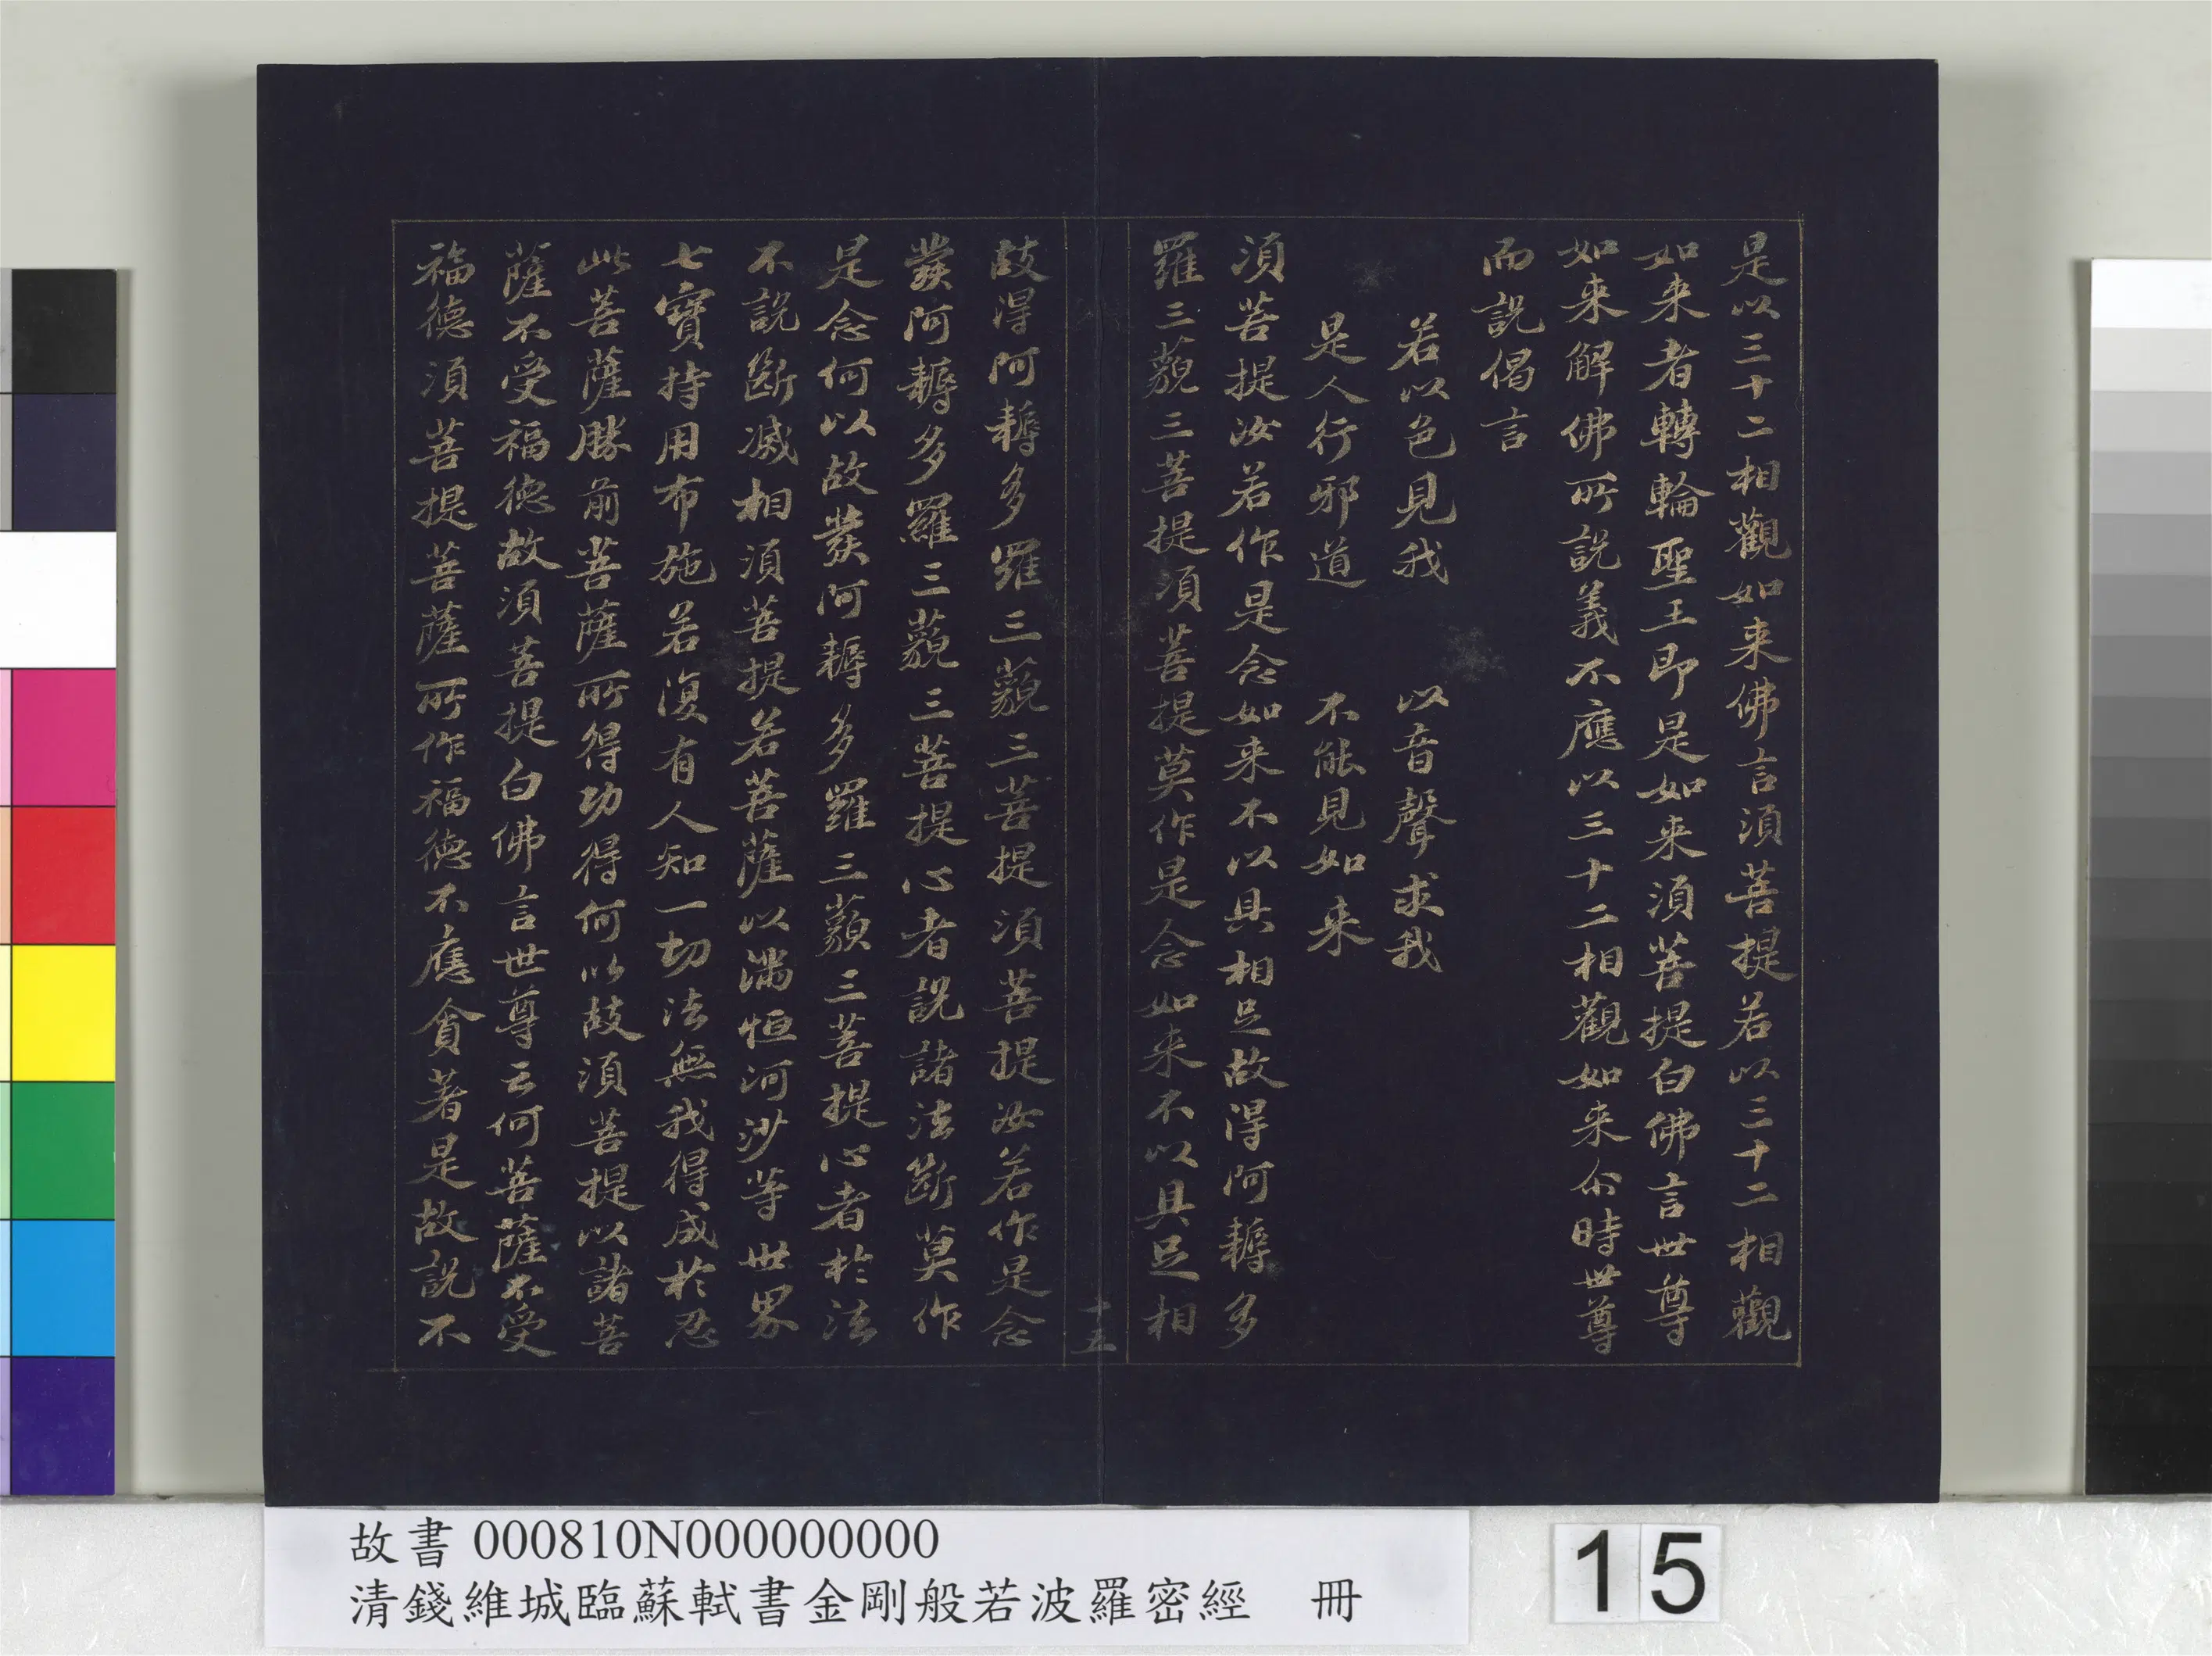 是以三十二相觀如来佛言須菩提若以三十二相觀
如来者轉輪聖王即是如来須菩提白佛言世尊
如来解佛所説義不應以三十二相觀如来尒時世尊
而説偈言
若以色見我　以音聲求我
是人行邪道　不能見如来
須菩提汝若作是念如来不以具相足故得阿耨多
羅三藐三菩提須菩提莫作是念如来不以具足相
故得阿耨多羅三藐三菩提須菩提汝若作是念
發阿耨多羅三藐三菩提心者説諸法斷莫作
是念何以故發阿耨多羅三藐三菩提心者於法
不説斷滅相須菩提若菩薩以滿恒河沙等世界
七寶持用布施若復有人知一切法無我得成於忍
此菩薩勝前菩薩所得功得何以故須菩提以諸菩
薩不受福德故須菩提白佛言世尊云何菩薩不受
福德須菩提菩薩所作福德不應貪著是故説不
十五
故書 000810N000000000
清錢維城臨蘇軾書金剛般若波羅密經　冊
15